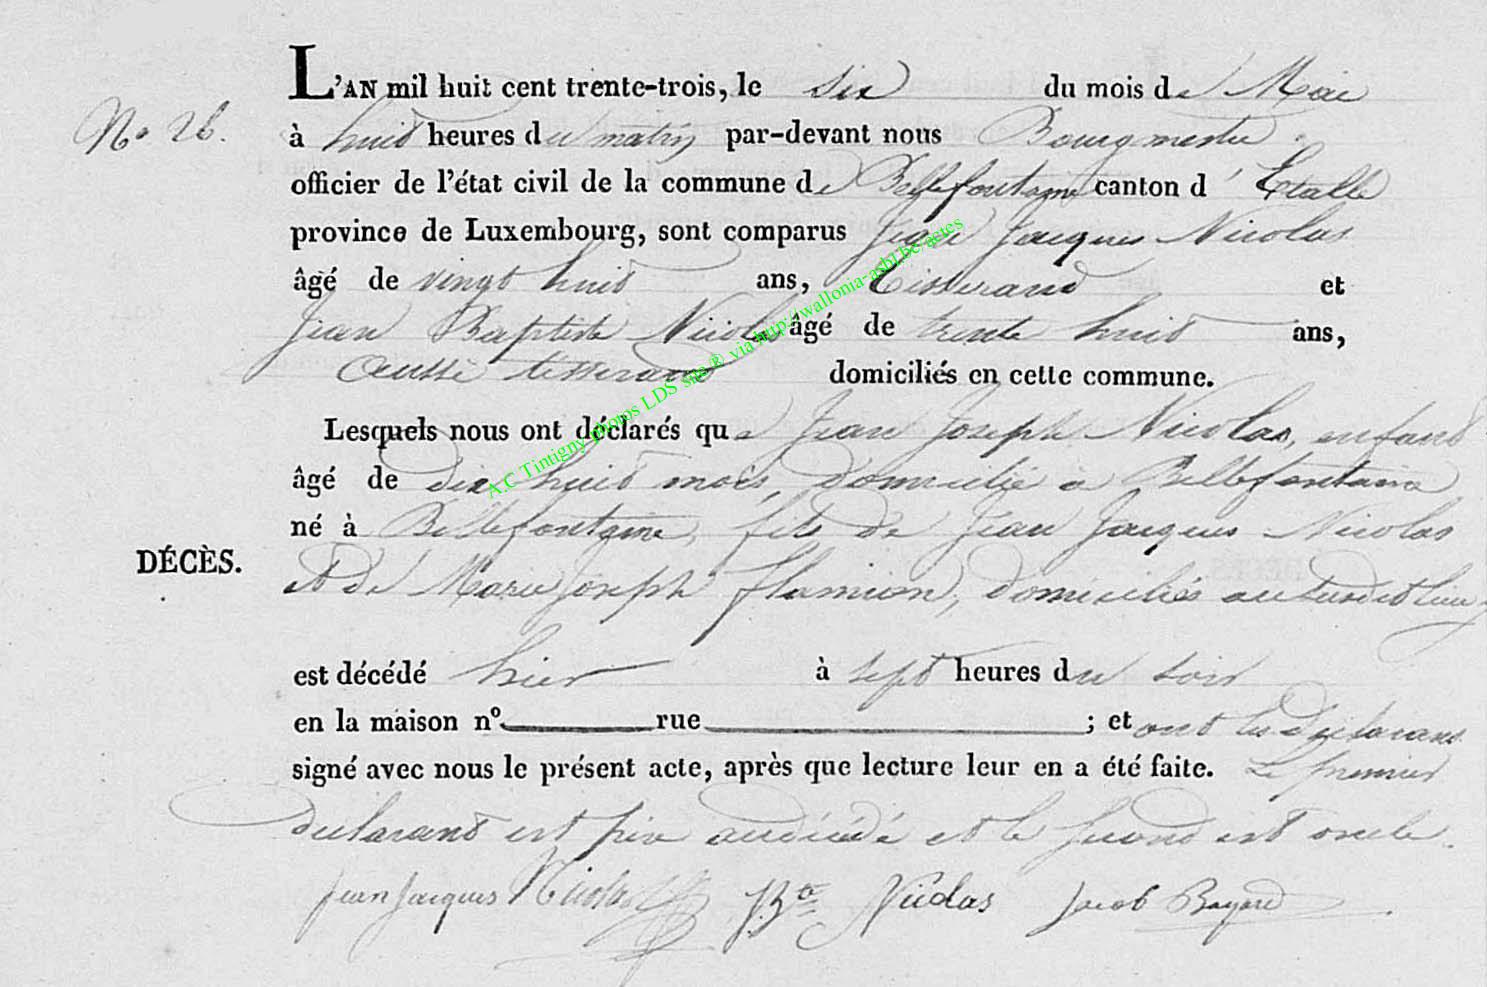 L'AN mil huit cent trente-trois, le six du mois de Mai
No 26.
à huit heures du matin par-devant nous Bourgmestre
officier de l'état civil de la commune de Bellefontaine canton d'Etalle
province de Luxembourg, sont comparus Jean Jacques Nicolas
âgé de vingt huit ans, tisserand et
Jean Baptiste Nicolas âgé de trente huit ans,
aussi tisserand domiciliés en cette commune.
A.C Tintigny photos LDS site ® via http://wallonia-asbl.be/actes
Lesquels nous ont déclarés que Jean Joseph Nicolas, enfant
âgé de dix huit mois, domicilié à Bellefontaine
né à Bellefontaine, fils de Jean Jacques Nicolas
DÉCÈS.
et de Marie Joseph flamion, domiciliés au susdit lieu,
est décédé hier à sept heures du soir
en la maison nº rue ; et ont les déclarans
signé avec nous le présent acte, après que lecture leur en a été faite. Le premier
déclarant est père au décédé et le second est oncle.
Jean Jacques Nicolas J.Bte Nicolas Jacob Bayard